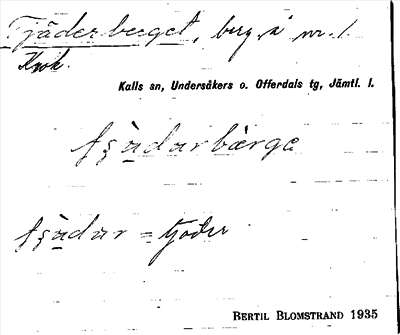 Tjäderberget, berg å nr. 1.
Kwk.
Kalls sn, Undersåkers o. Offerdals tg, Jämtl. l.
tjàdarbærge
tjàdar = tjäder
BERTIL BLOMSTRAND 1935